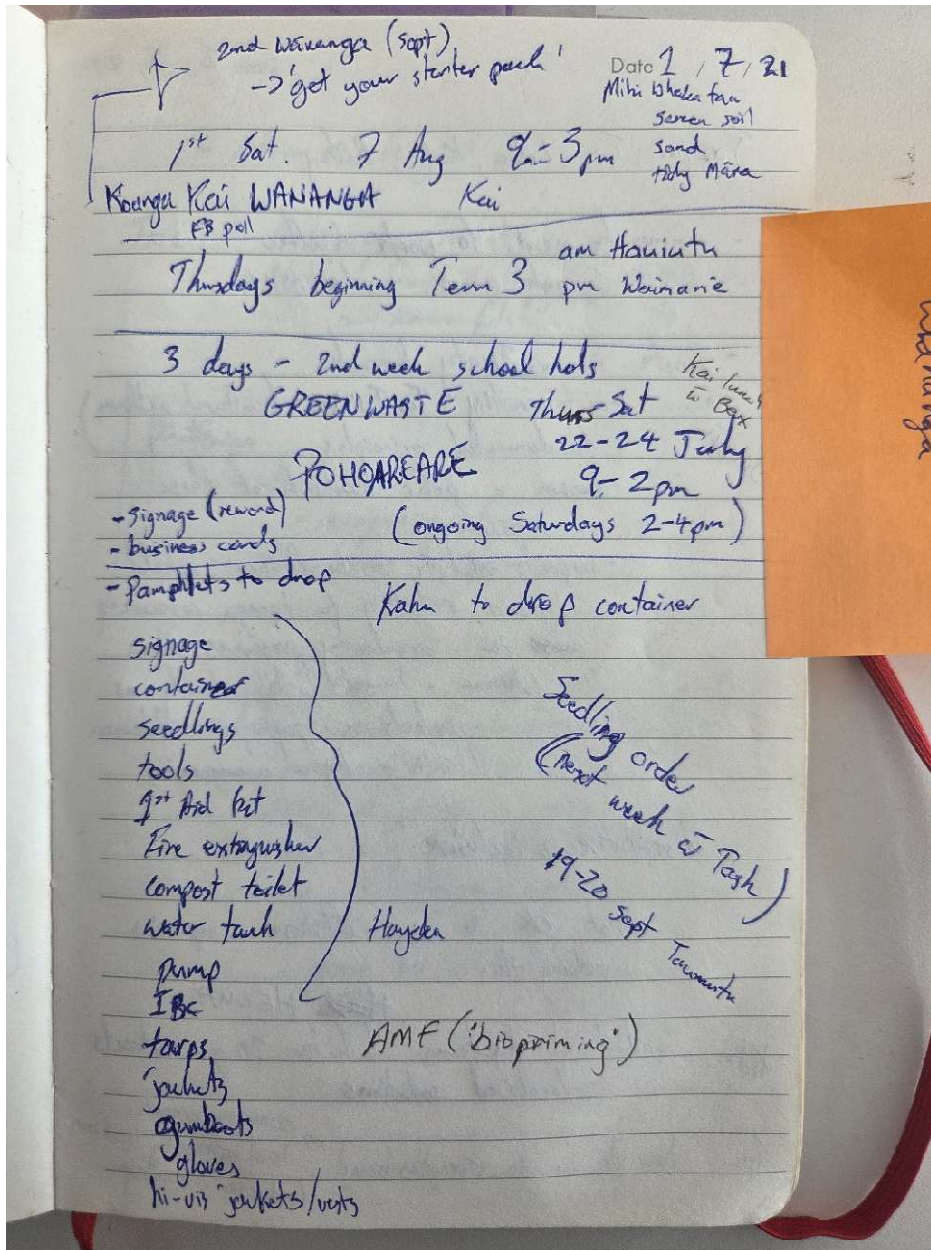 2nd Wānanga (sept)
-> 'get your starter pack'
Date 1, 7, 21
Mihi Whakatau
screen soil
sand
tidy Māra
1st Sat. 7 Aug 9-3pm
Koanga Kai WANANGA Kai
FB poll
Thursdays beginning Term 3
am Hauiutu
pm Wainarie
3 days - 2nd week school hols
Kai lunch
w̄ Bex
GREENWASTE Thurs-Sat
22-24 July
POHOAREARE 9-2pm
- signage (reword)
(ongoing Saturdays 2-4pm)
- business cards
- Pamphlets to drop
Kahu to drop container
signage
container
seedlings
tools
1st Aid kit
Fire extinguisher
compost toilet
water tank
pump
IBC
tarps
jackets
gumboots
gloves
hi-vis jackets/vests
Hayden
Seedling order
(next week w̄ Tash)
19-20 Sept
AMF ('biopriming')
wānanga